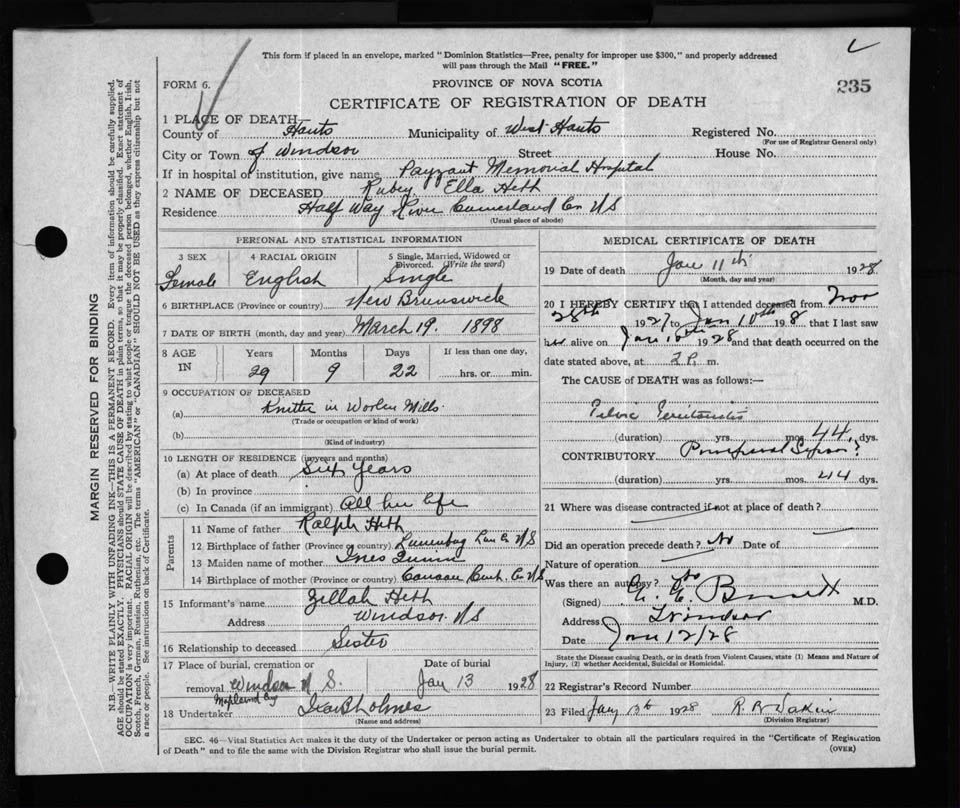 This form if placed in an envelope, marked "Dominion Statistics—Free, penalty for improper use $300," and properly addressed
will pass through the Mail "FREE."
FORM 6.
PROVINCE OF NOVA SCOTIA
235
CERTIFICATE OF REGISTRATION OF DEATH
1 PLACE OF DEATH
County of Hants Municipality of West Hants Registered No.
(For use of Registrar General only)
City or Town of Windsor Street House No.
If in hospital or institution, give name Payzant Memorial Hospital
2 NAME OF DECEASED Rubey Ella Heth
Residence Half Way River Cumerland Co NS
(Usual place of abode)
PERSONAL AND STATISTICAL INFORMATION
3 SEX 4 RACIAL ORIGIN 5 Single, Married, Widowed or
Divorced. (Write the word)
Female English Single
6 BIRTHPLACE (Province or country) New Brunswick
7 DATE OF BIRTH (month, day and year) March 19. 1898
8 AGE IN Years Months Days If less than one day,
29 9 22 hrs. or min.
9 OCCUPATION OF DECEASED
(a) Knitter in Woolen Mills.
(Trade or occupation or kind of work)
(b)
(Kind of industry)
10 LENGTH OF RESIDENCE (in years and months)
(a) At place of death Six Years
(b) In province
(c) In Canada (if an immigrant) All her life
Parents
11 Name of father Ralph Heth
12 Birthplace of father (Province or country) Lunenburg Lun Co NS
13 Maiden name of mother Ines
14 Birthplace of mother (Province or country) Cansau Co NS
15 Informant's name Zillah Heth
Address Windsor. NS
16 Relationship to deceased Sister
17 Place of burial, cremation or Date of burial
removal Windsor N S. Jan 13 1928
Maplewood Cey
18 Undertaker Ira B Holmes
(Name and address)
MEDICAL CERTIFICATE OF DEATH
19 Date of death Jan 11th 1928
(Month, day and year)
20 I HEREBY CERTIFY that I attended deceased from Nov
28th 1927 to Jan 10th 1928 that I last saw
her alive on Jan 10th 1928 and that death occurred on the
date stated above, at 2 P. m.
The CAUSE of DEATH was as follows:—
Pelvic Peritonitis
(duration) yrs. mos. 44. dys.
CONTRIBUTORY Puerperal ?
(duration) yrs. mos. 44 dys.
21 Where was disease contracted if not at place of death?
Did an operation precede death? No Date of
Nature of operation
Was there an autopsy? No
(Signed) M.D.
Address Windsor
Date Jan 12/28
State the Disease causing Death, or in death from Violent Causes, state (1) Means and Nature of
Injury, (2) whether Accidental, Suicidal or Homicidal.
22 Registrar's Record Number
23 Filed Jany 13th 1928 R. B Dakin
(Division Registrar)
SEC. 46—Vital Statistics Act makes it the duty of the Undertaker or person acting as Undertaker to obtain all the particulars required in the "Certificate of Registration
of Death" and to file the same with the Division Registrar who shall issue the burial permit. (OVER)
MARGIN RESERVED FOR BINDING
N.B.—WRITE PLAINLY WITH UNFADING INK—THIS IS A PERMANENT RECORD. Every item of information should be carefully supplied.
AGE should be stated EXACTLY. PHYSICIANS should STATE CAUSE OF DEATH in plain terms, so that it may be properly classified. Exact statement of
OCCUPATION is very important. RACIAL ORIGIN will be described by stating to what people or tongue the deceased person belonged, whether English, Irish,
Scotch, French, German, Russian, Ruthenian, etc. The terms "AMERICAN" or "CANADIAN" SHOULD NOT BE USED as they express citizenship but not
a race or people. See instructions on back of Certificate.